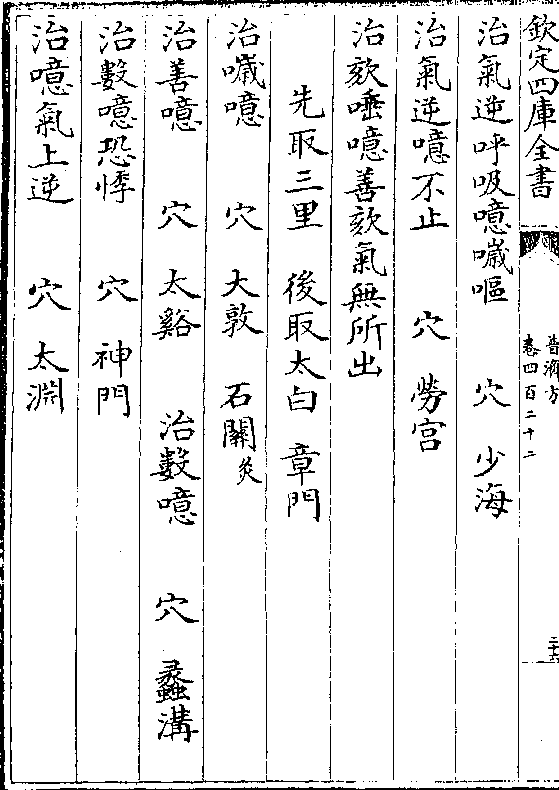 欽定四庫全書
普濟方
卷四百二十二
二十六
治氣逆呼吸噫噦嘔 穴 少海
治氣逆噫不止 穴 勞宫
治欬唾噫善欬氣無所出
先取三里 後取太白 章門
治噦噫 穴 大敦 石關灸
治善噫 穴 太谿 治數噫 穴 蠡溝
治數噫恐悸 穴 神門
治噫氣上逆 穴 太淵